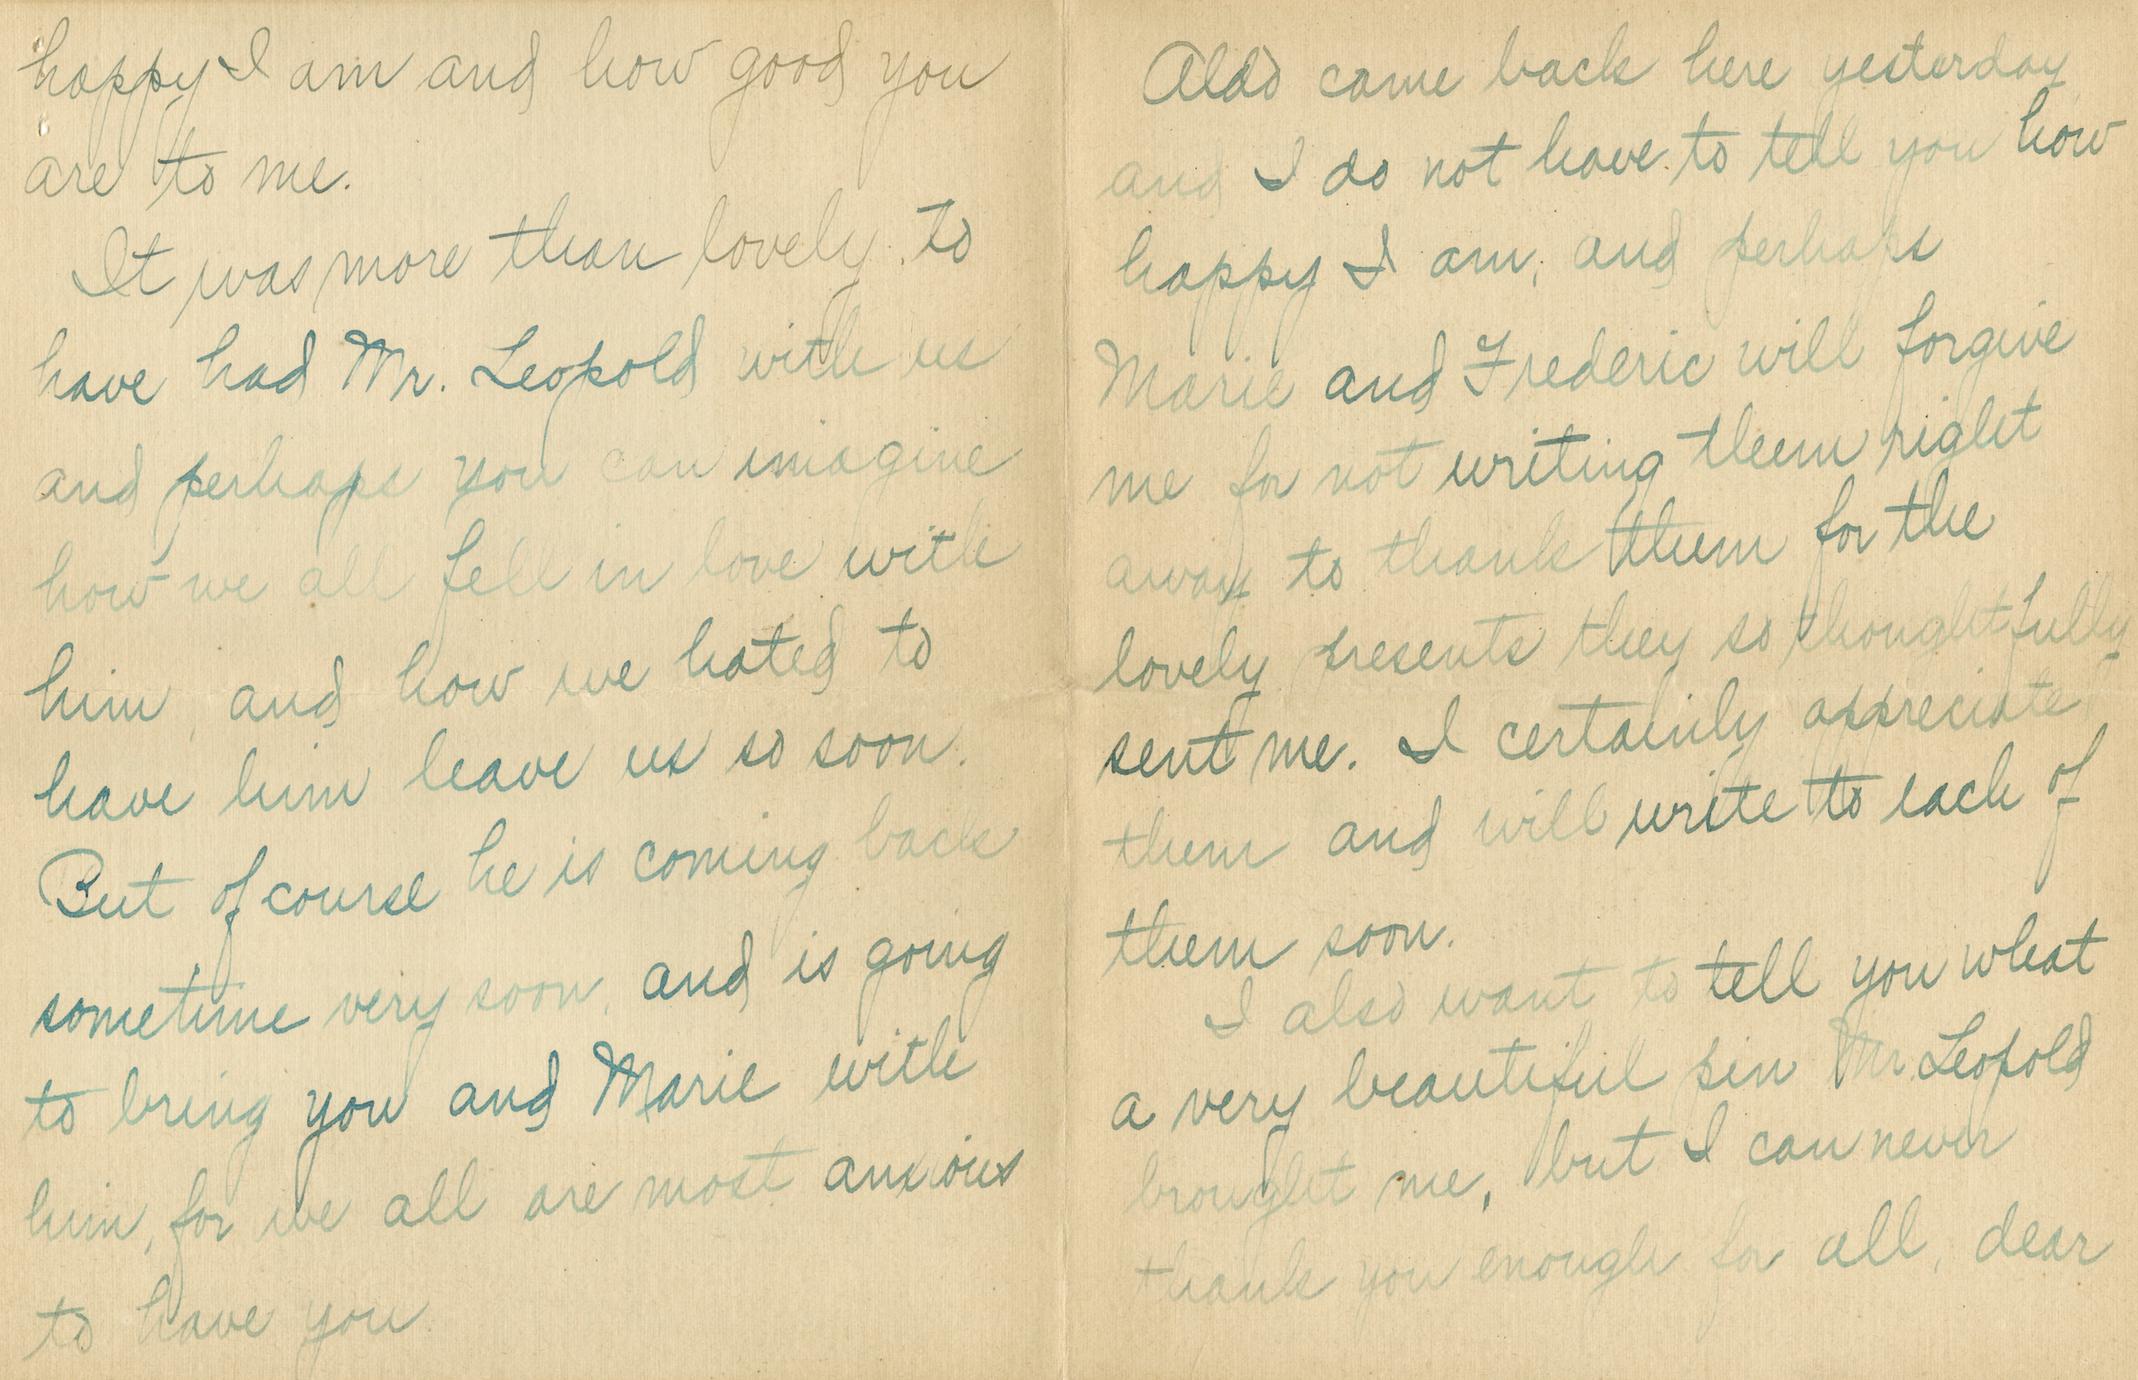 happy I am and how good you
are to me.
It was more than lovely to
have had Mr. Leopold with us
and perhaps you can imagine
how we all fell in love with
him, and how we hated to
have him leave us so soon.
But of course he is coming back
sometime very soon, and is going
to bring you and Marie with
him, for we all are most anxious
to have you
Aldo came back here yesterday
and I do not have to tell you how
happy I am, and perhaps
Marie and Frederic will forgive
me for not writing them right
away to thank them for the
lovely presents they so thoughtfully
sent me. I certainly appreciate
them and will write to each of
them soon.
I also want to tell you what
a very beautiful pin Mr. Leopold
brought me, but I can never
thank you enough for all, dear